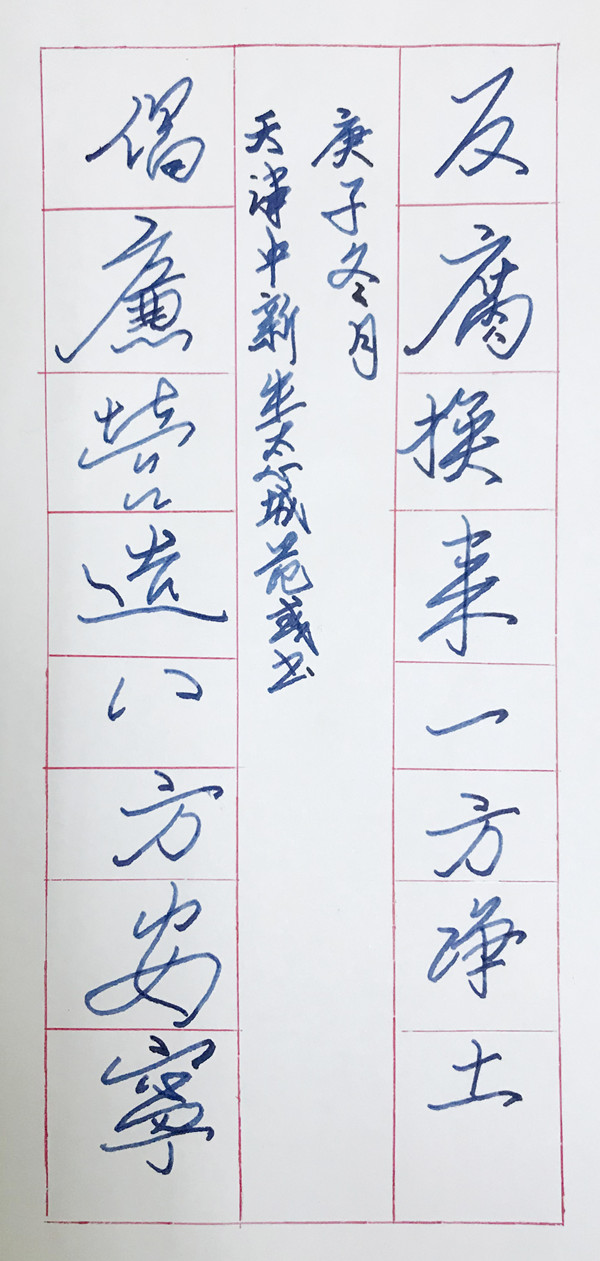 反腐换来一方净土
庚子冬月
天津中新生态城范或书
倡廉营造八方安寧